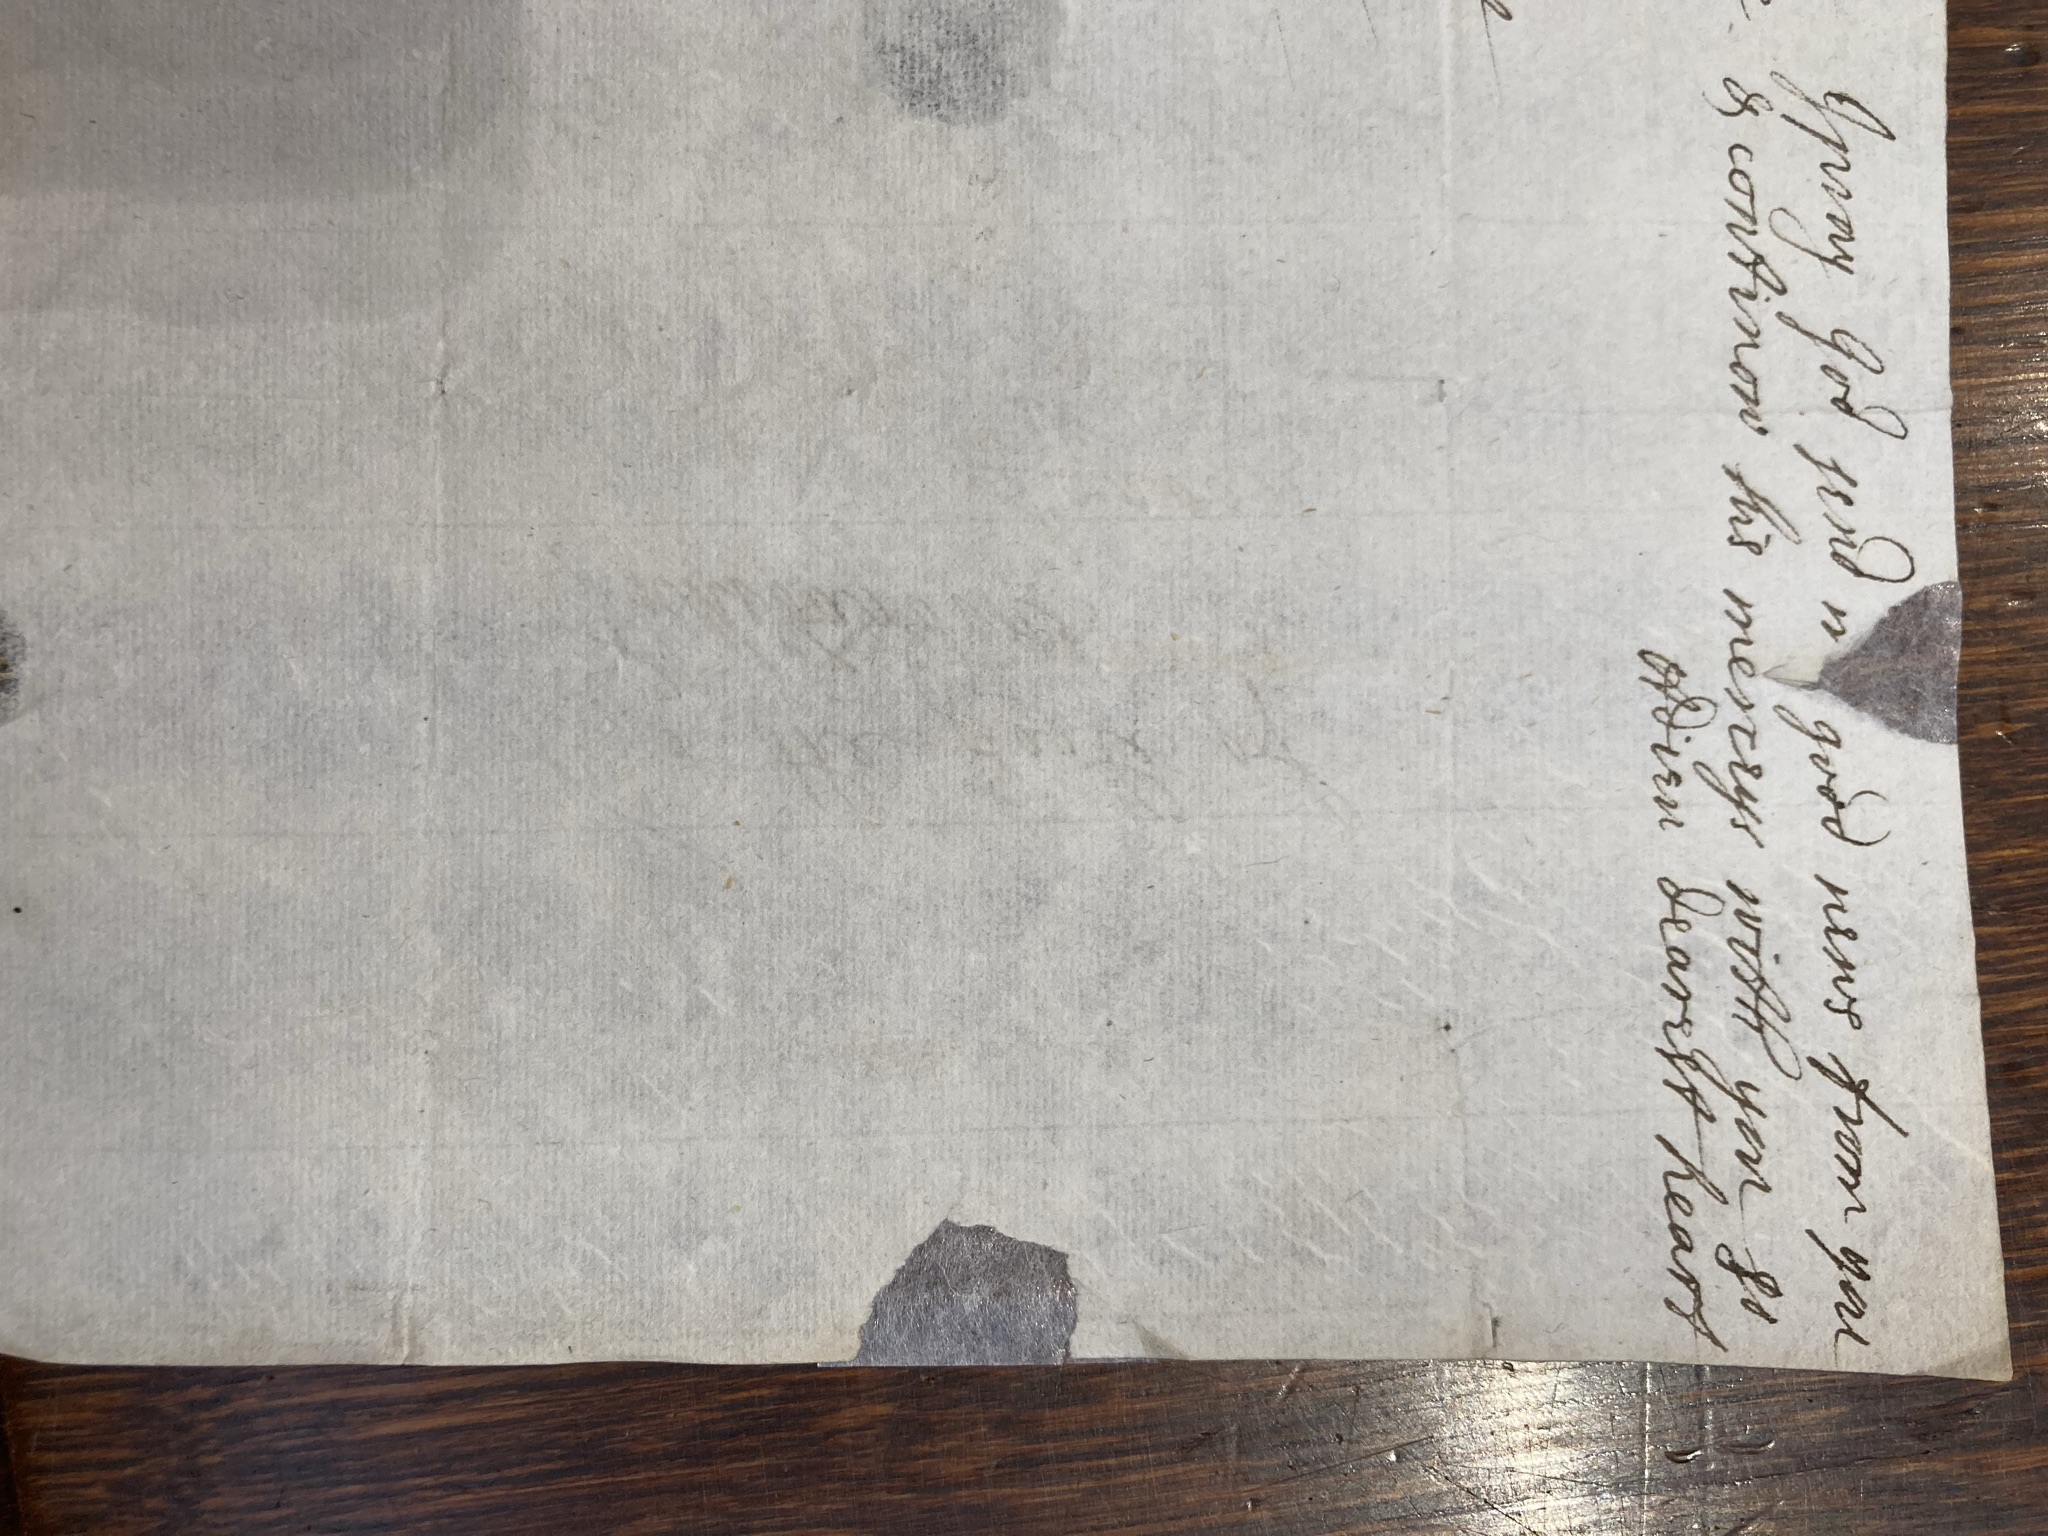 I pray God send m good news from you
& continow his merceys with you so
Adieu dearest heart